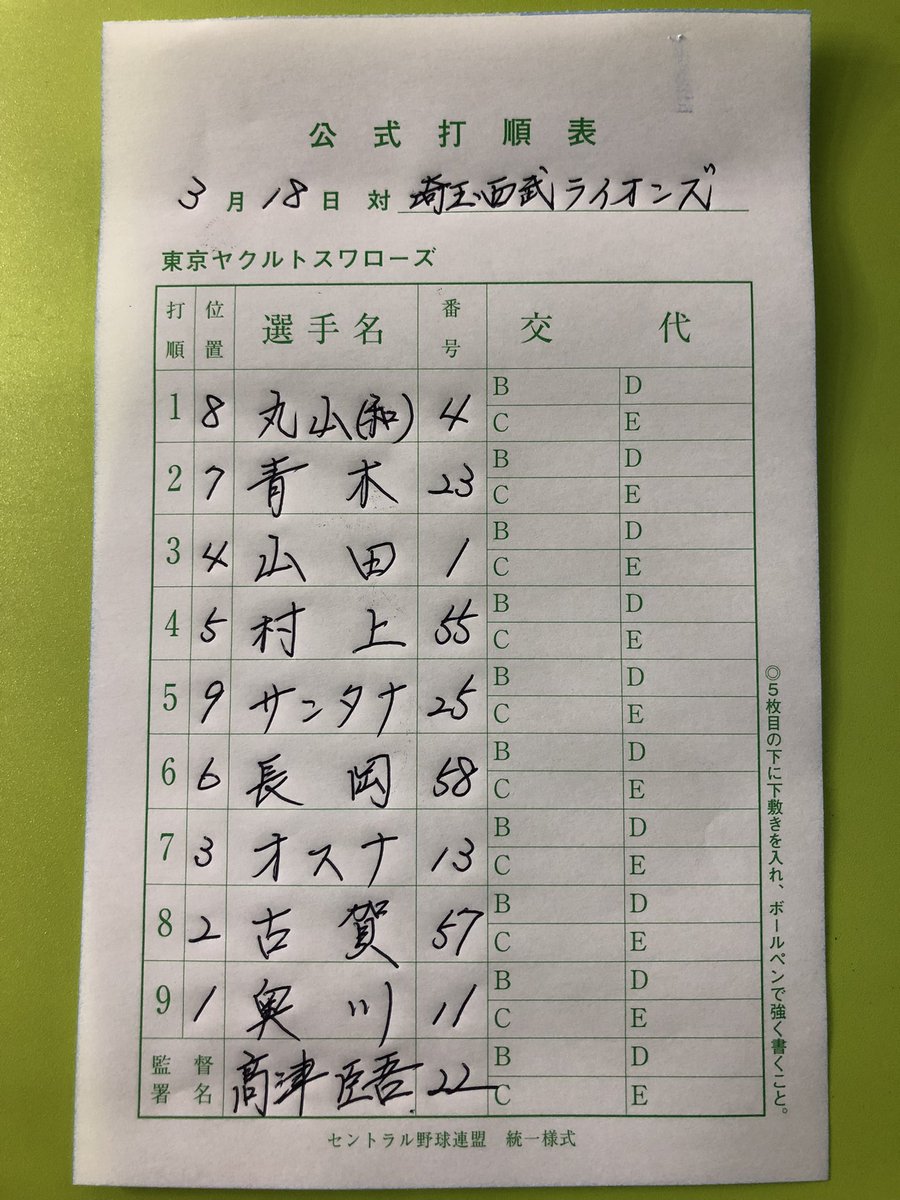 公式打順表
3月18日 対 埼玉西武ライオンズ
東京ヤクルトスワローズ
打順 位置 選手名 番号 交代
1 8 丸山(和) 4 B D C E
2 7 青木 23 B D C E
3 4 山田 1 B D C E
4 5 村上 55 B D C E
5 9 サンタナ 25 B D C E
6 6 長岡 58 B D C E
7 3 オスナ 13 B D C E
8 2 古賀 57 B D C E
9 1 奥川 11 B D C E
監督署名 髙津臣吾 22 B D C E
セントラル野球連盟 統一様式
◎5枚目の下に下敷きを入れ、ボールペンで強く書くこと。